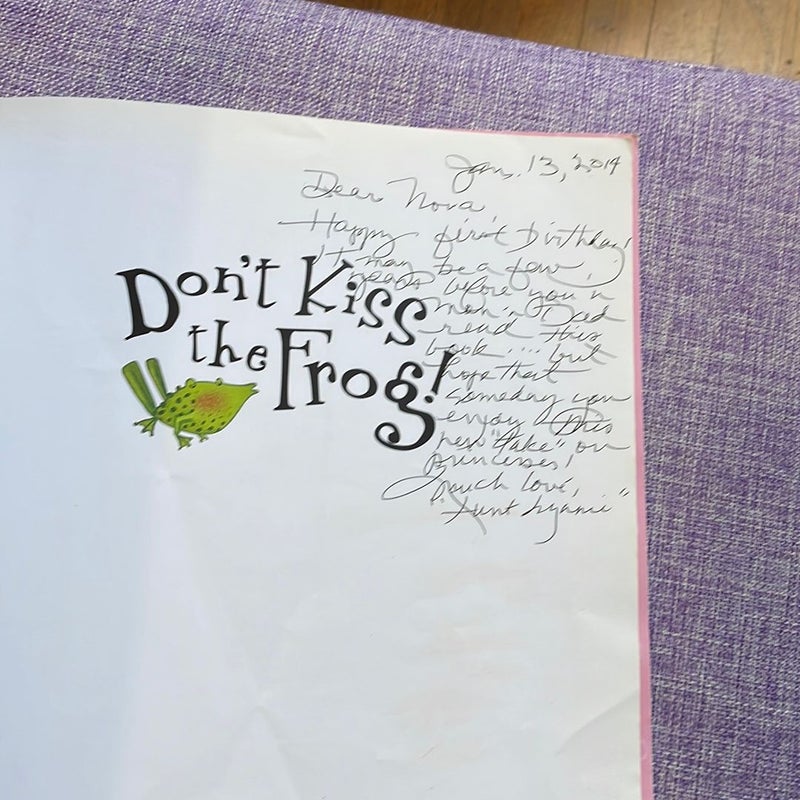 Jan. 13, 2014
Dear Nova,
Happy first Birthday!
It may be a few
years before you'r
read this
book .... but
hope that
someday you
enjoy this
new "take" on
princesses!
much love,
"Aunt Lynnie"
Don't Kiss
the Frog!